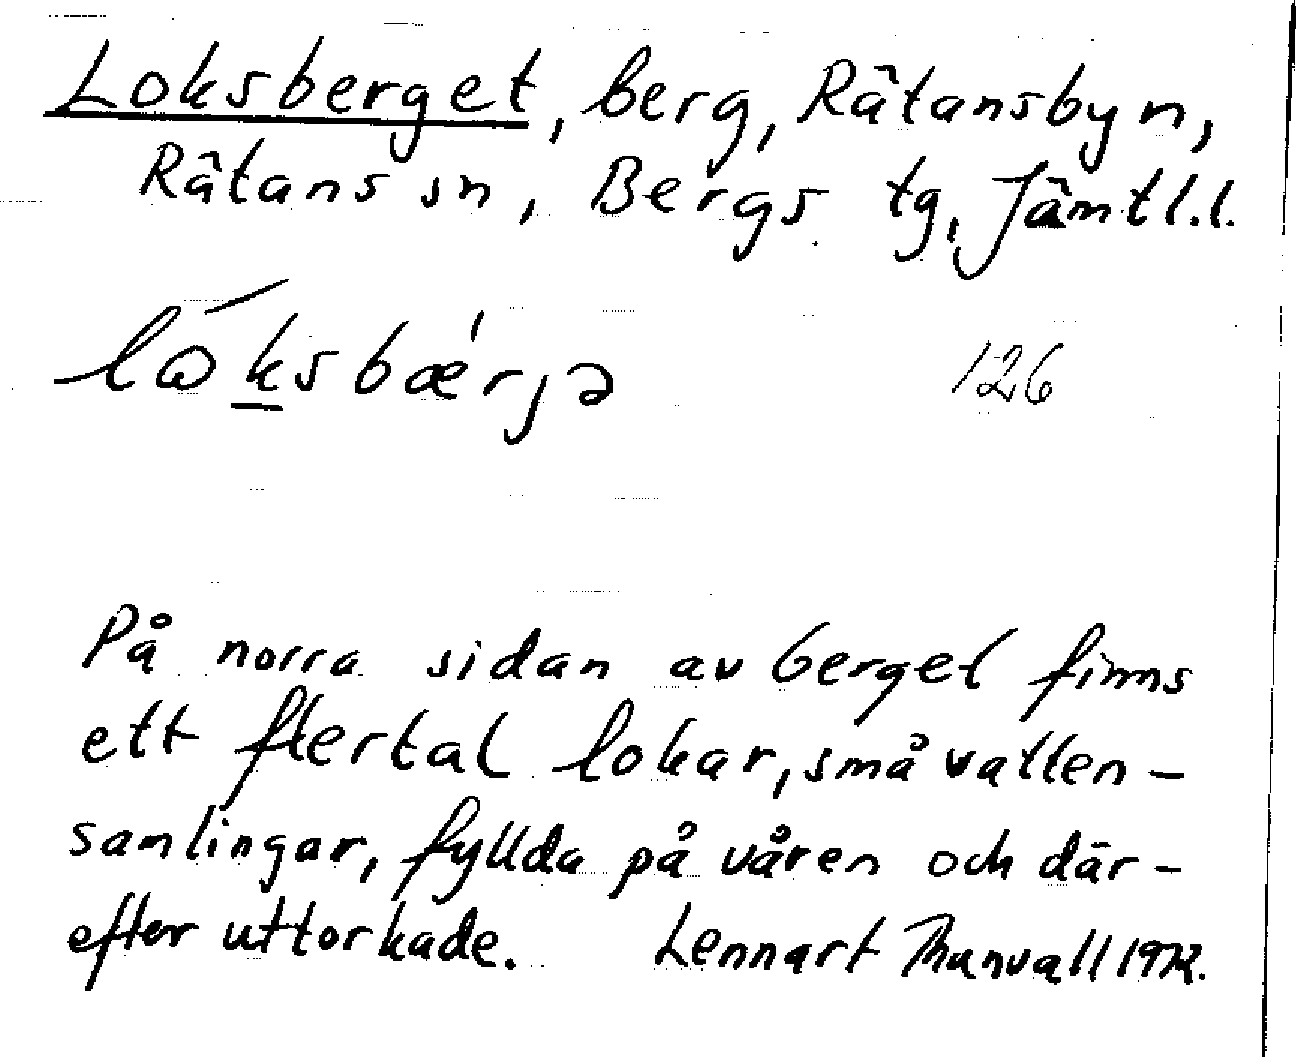 Loksberget, berg, Rätansbyn,
Rätans sn, Bergs tg, Jämtl.l.
lóksbǽrjə 126
På norra sidan av berget finns
ett flertal lokar, små vatten-
samlingar, fyllda på våren och där-
efter uttorkade. Lennart Thunvall